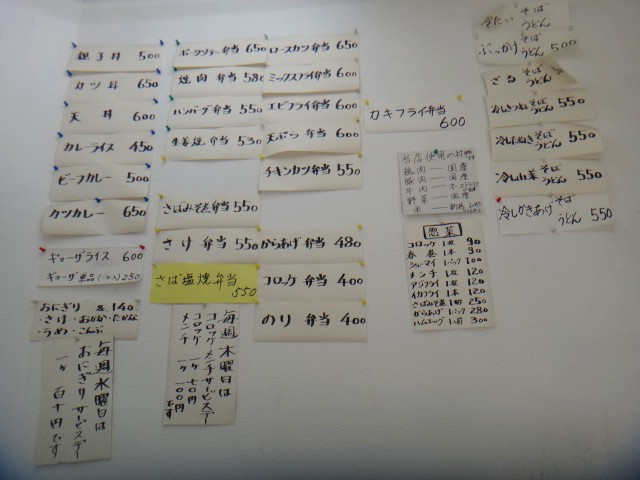 親子丼 500
カツ丼 650
天丼 600
カレーライス 450
ビーフカレー 500
カツカレー 650
ギョーザライス 600
ギョーザ単品(一ケ) 250
おにぎり 各140
・さけ・おかか・たかな
・うめ・こんぶ
毎週水曜日は
おにぎりサービスデー
一ケ 百十円です
ポークソテー弁当 650
焼肉弁当 580
ハンバーグ弁当 550
生姜焼弁当 530
さばみそ煮弁当 550
さけ弁当 550
さば塩焼弁当
550
毎週木曜日は
コロッケメンチサービスデー
コロッケ 一ケ 七〇円
メンチ 一ケ 一〇〇円
です
ロースカツ弁当 650
ミックスフライ弁当 600
エビフライ弁当 600
天ぷら弁当 600
チキンカツ弁当 550
からあげ弁当 480
コロッケ弁当 400
のり弁当 400
カキフライ弁当
600
当店使用の材料
鶏肉 国産
豚肉 国産
牛肉
野菜 国産
米
惣菜
コロッケ 1枚 90
春巻 1本 90
シューマイ 1パック 100
メンチ 1枚 120
アジフライ 1枚 120
イカフライ 1本 120
さばみそ煮 1切 250
からあげ 1パック 280
ハムエッグ 1ヶ前 300
冷たい そば
うどん
ぶっかけ そば
うどん 500
ざる そば
うどん
冷しきつね そば
うどん 550
冷したぬき そば
うどん 550
冷し山菜 そば
うどん 550
冷しかきあげ そば
うどん 550